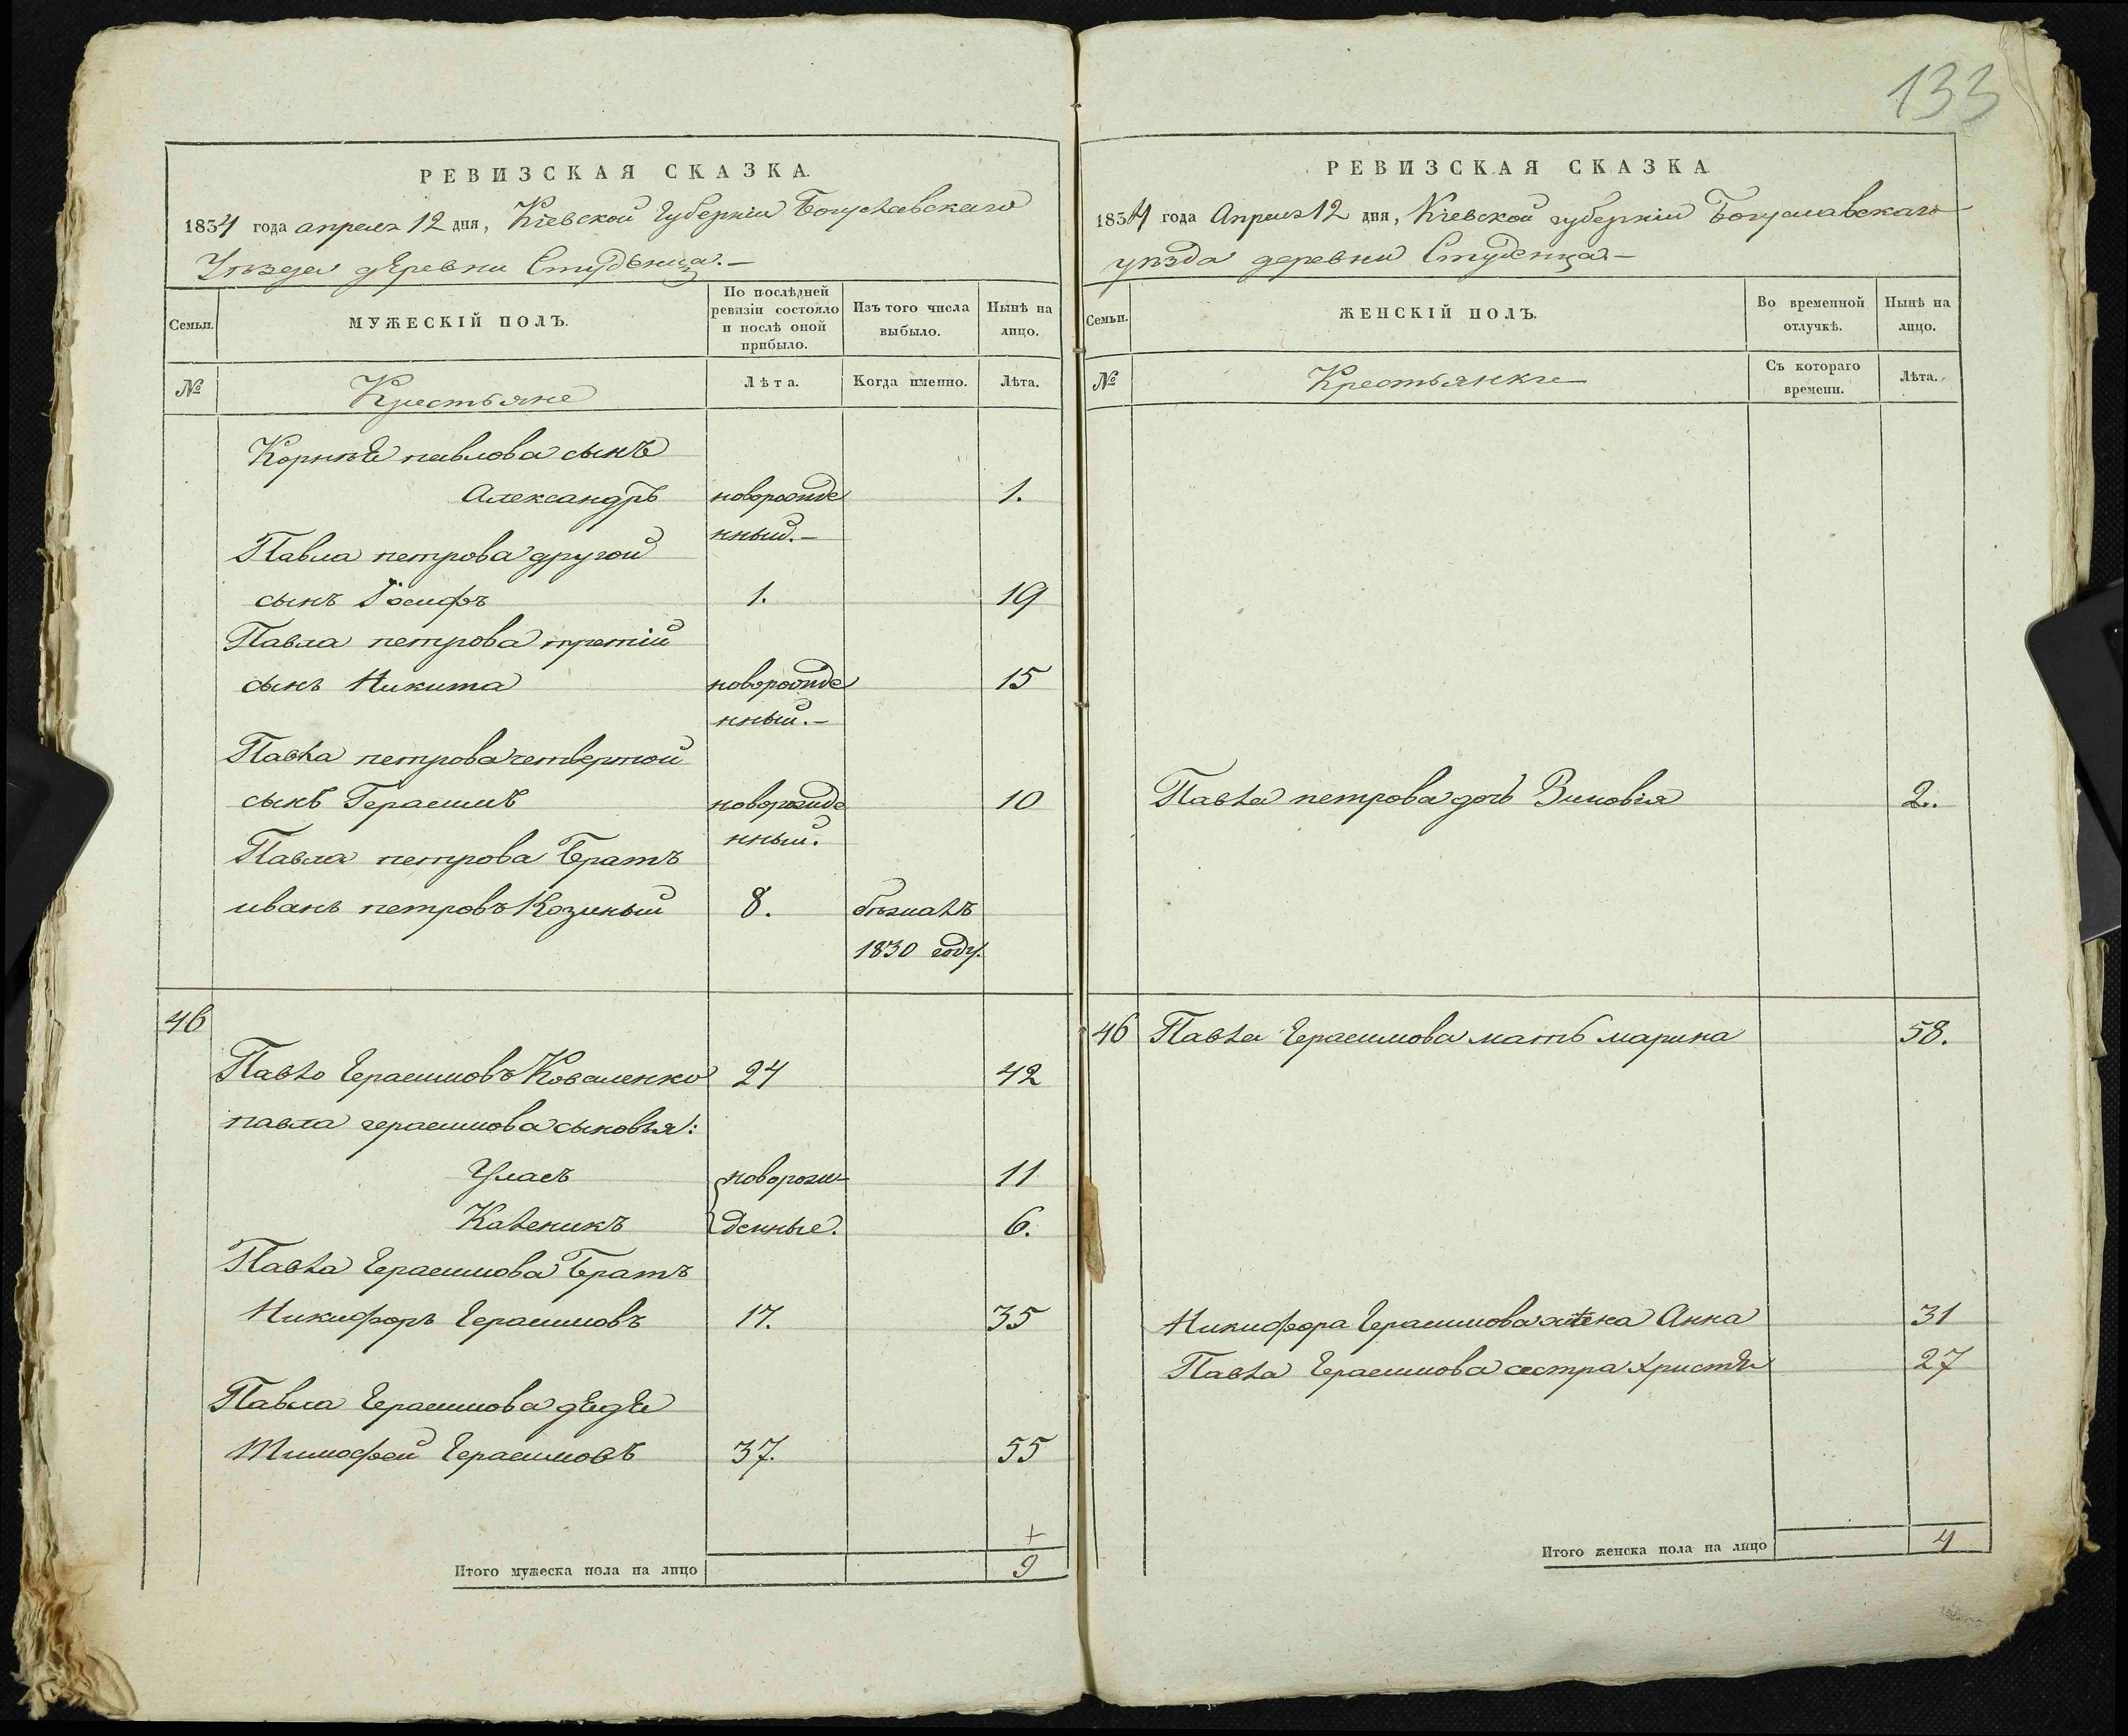 РЕВИЗСКАЯ СКАЗКА.
1834 года апреля 12 дня, Кіевской Губерніи Богуславскаго
Уѣзда деревни Студенца.—
Семьи.
МУЖЕСКІЙ ПОЛЪ.
По послѣдней
ревизіи состояло
и послѣ оной
прибыло.
Изъ того числа
выбыло.
Нынѣ на
лицо.
№
Крестьяне
Лѣта.
Когда именно.
Лѣта.
Корнѣя павлова сынъ
Александръ новорожде 1.
нный.—
Павла петрова другой
сынъ Іосифъ 1. 19
Павла петрова третій
сынъ Никита новорожде 15
нный.—
Павла петрова четвертой
сынъ Герасимъ новорожде 10
нный.
Павла петрова Братъ
иванъ петровъ Козиный 8. бѣжалъ
1830 году.
46
Павло Герасимовъ Коваленко 24 42
павла герасимова сыновья:
Уласъ новорож- 11
Каленикъ денные. 6.
Павла Герасимова Братъ
Никифоръ Герасимовъ 17. 35
Павла Герасимова дядя
Тимофей Герасимовъ 37. 55
+
Итого мужеска пола на лицо 9
133
РЕВИЗСКАЯ СКАЗКА
1834 года Апреля 12 дня, Кіевской губерніи Богуславскаго
уѣзда деревни Студенца.—
Семьи.
ЖЕНСКІЙ ПОЛЪ.
Во временной
отлучкѣ.
Нынѣ на
лицо.
№
Крестьянки
Съ котораго
времени.
Лѣта.
Павла петрова дочь Зиновія 2.
46 Павла Герасимова мать марина 58.
Никифора Герасимова жена Анна 31
Павла Герасимова сестра христя 27
Итого женска пола на лицо 4